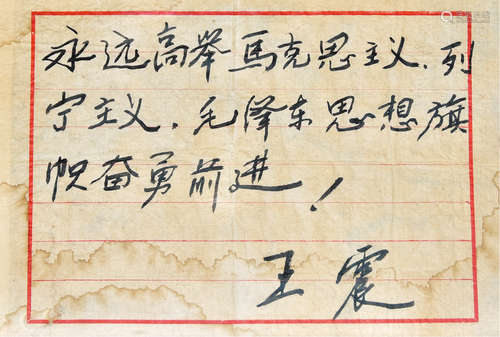 永远高举馬克思主义、列
宁主义、毛泽东思想旗
帜奋勇前进！
王震